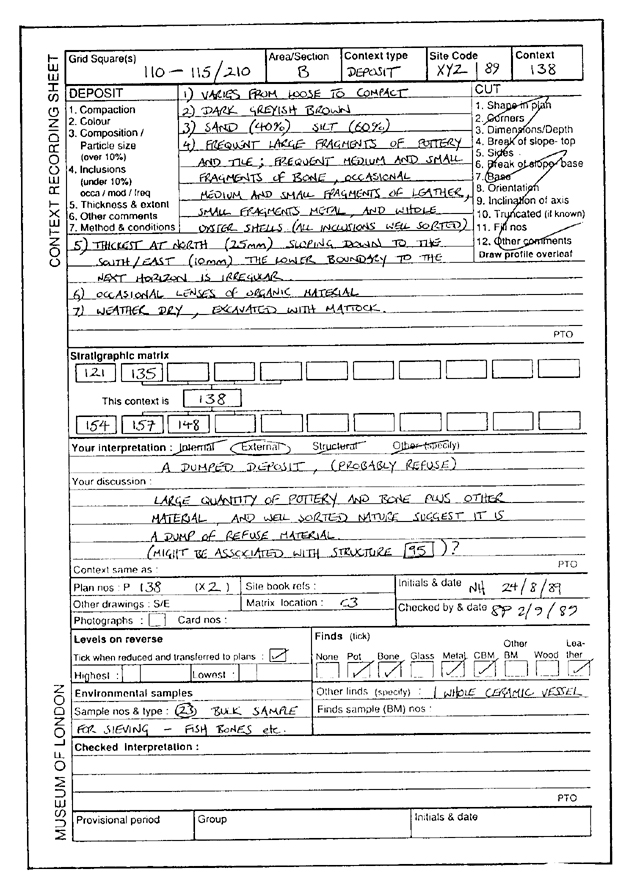 CONTEXT RECORDING SHEET
Grid Square(s) 110 – 115/210
Area/Section B
Context type DEPOSIT
Site Code XYZ 89
Context 138
DEPOSIT
1. Compaction
2. Colour
3. Composition /
Particle size
(over 10%)
4. Inclusions
(under 10%)
occa / mod / freq
5. Thickness & extent
6. Other comments
7. Method & conditions
1) VARIES FROM LOOSE TO COMPACT
2) DARK GREYISH BROWN
3) SAND (40%) SILT (60%)
4) FREQUENT LARGE FRAGMENTS OF POTTERY
AND TILE; FREQUENT MEDIUM AND SMALL
FRAGMENTS OF BONE, OCCASIONAL
MEDIUM AND SMALL FRAGMENTS OF LEATHER,
SMALL FRAGMENTS METAL, AND WHOLE
OYSTER SHELLS (ALL INCLUSIONS WELL SORTED)
5) THICKEST AT NORTH (25mm) SLOPING DOWN TO THE
SOUTH/EAST (10mm) THE LOWER BOUNDARY TO THE
NEXT HORIZON IS IRREGULAR.
6) OCCASIONAL LENSES OF ORGANIC MATERIAL
7) WEATHER DRY, EXCAVATED WITH MATTOCK.
CUT
1. Shape in plan
2. Corners
3. Dimensions/Depth
4. Break of slope- top
5. Sides
6. Break of slope- base
7. Base
8. Orientation
9. Inclination of axis
10. Truncated (if known)
11. Fill nos
12. Other comments
Draw profile overleaf
PTO
Stratigraphic matrix
121 135
This context is 138
154 157 148
Your interpretation : Internal External Structural Other (specify)
A DUMPED DEPOSIT, (PROBABLY REFUSE)
Your discussion :
LARGE QUANTITY OF POTTERY AND BONE PLUS OTHER
MATERIAL, AND WELL SORTED NATURE SUGGEST IT IS
A DUMP OF REFUSE MATERIAL.
(MIGHT BE ASSOCIATED WITH STRUCTURE 95)?
Context same as :
PTO
Plan nos : P 138 (X2)
Site book refs :
Initials & date NH 24/8/89
Other drawings : S/E
Matrix location : C3
Checked by & date SP 2/9/89
Photographs :
Card nos :
Levels on reverse
Tick when reduced and transferred to plans : ✓
Highest :
Lowest :
Finds (tick)
None Pot Bone Glass Metal CBM Other BM Wood Lea-ther
Other finds (specify) : 1 WHOLE CERAMIC VESSEL
Environmental samples
Sample nos & type : (23) BULK SAMPLE
FOR SIEVING – FISH BONES etc.
Finds sample (BM) nos :
Checked Interpretation :
PTO
Provisional period
Group
Initials & date
MUSEUM OF LONDON